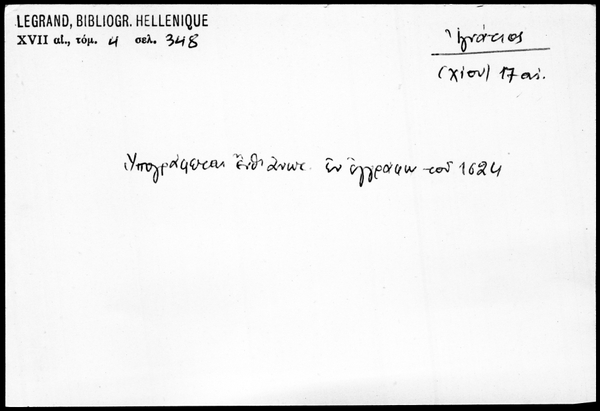 LEGRAND, BIBLIOGR. HELLENIQUE
XVII αἰ., τόμ. 4 σελ. 348
Ἰγνάτιος
(Χίου) 17 αἰ.
Ὑπογράφεται ἐν ἐγγράφῳ τοῦ 1624